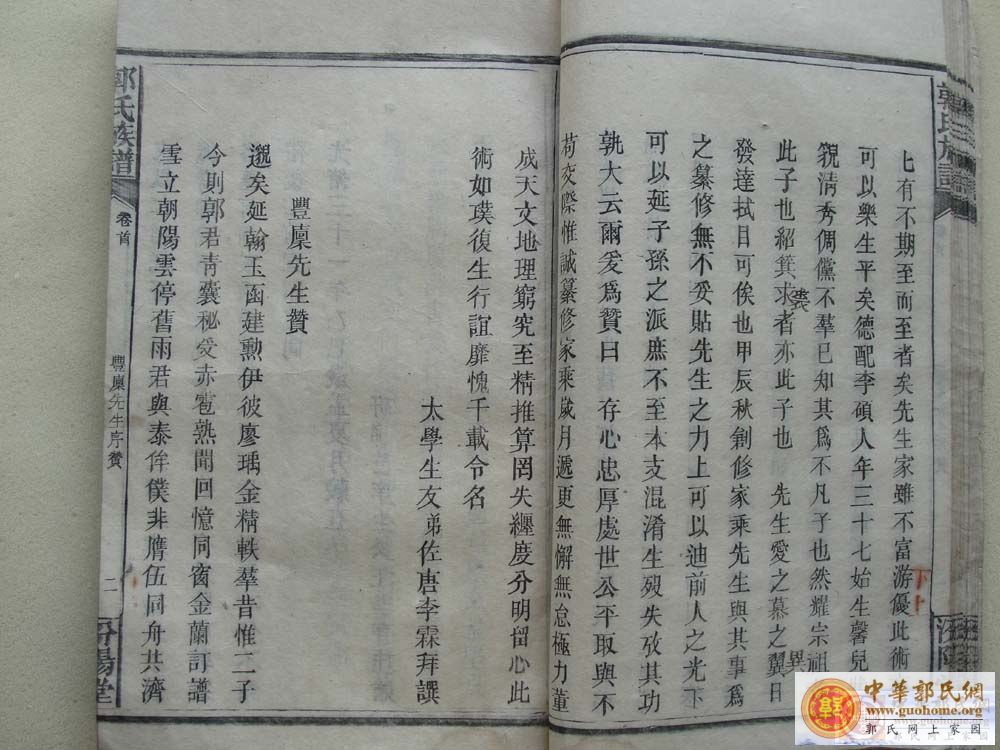 郭氏族譜
七有不期至而至者矣先生家雖不富游優此術
可以樂生平矣德配李碩人年三十七始生馨兒
貌清秀倜儻不羣已知其爲不凡子也然耀宗祖
此子也紹箕求者亦此子也 先生愛之慕之翼日
裘
異
發達拭目可俟也甲辰秋創修家乘先生與其事爲
之纂修無不妥貼先生之力上可以迪前人之光下
可以延子孫之派庶不至本支混淆生歿失攷其功
孰大云爾爰爲贊曰 存心忠厚處世公平取與不
苟交際惟誠纂修家乘歲月遞更無懈無怠極力董
成天文地理窮究至精推算罔失纏度分明留心此
術如璞復生行誼靡愧千載令名
太學生友弟佐唐李霖拜譔
豐廩先生贊
邈矣延翰玉函建勳伊彼廖瑀金精軼羣昔惟二子
今則郭君青囊秘受赤雹熟聞回憶同窗金蘭訂譜
雪立朝陽雲停舊雨君與泰侔僕非膺伍同舟共濟
郭氏族譜
卷首
豐廩先生序贊
二
汾陽堂
中華郭氏網
www.guohome.org
郭氏網上家园